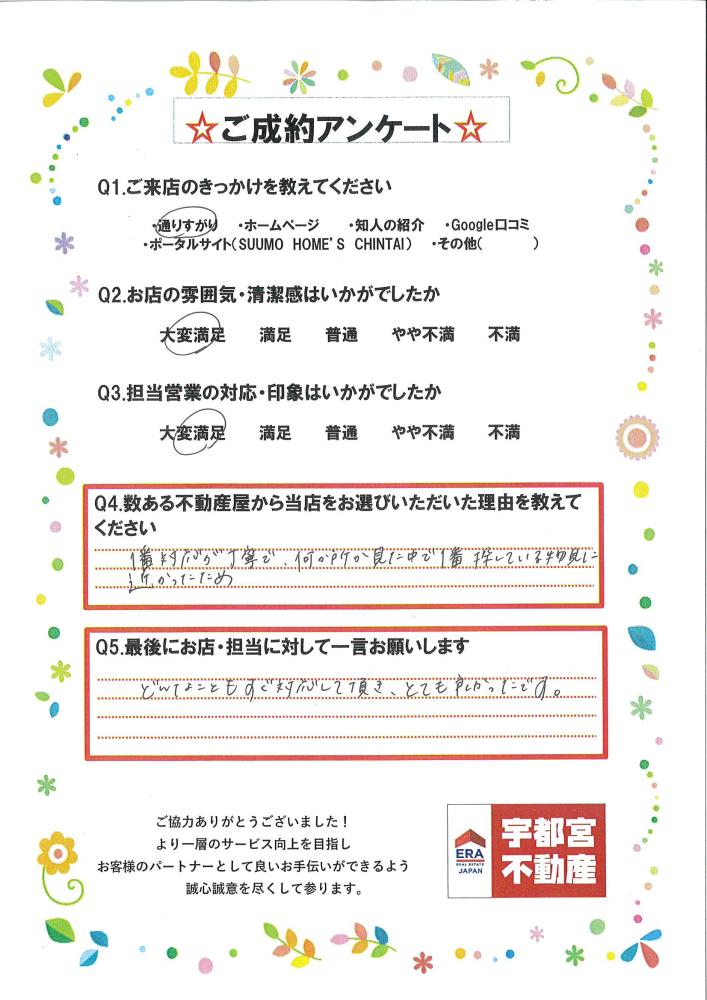 ☆ご成約アンケート☆
Q1.ご来店のきっかけを教えてください
・通りすがり ・ホームページ ・知人の紹介 ・Google口コミ
・ポータルサイト(SUUMO HOME'S CHINTAI) ・その他( )
Q2.お店の雰囲気・清潔感はいかがでしたか
大変満足 満足 普通 やや不満 不満
Q3.担当営業の対応・印象はいかがでしたか
大変満足 満足 普通 やや不満 不満
Q4.数ある不動産屋から当店をお選びいただいた理由を教えて
ください
1番対応が丁寧で、何か所か見た中で1番探している物見に
近かったため
Q5.最後にお店・担当に対して一言お願いします
どんなこともすぐ対応して頂き、とても良かったです。
ご協力ありがとうございました!
より一層のサービス向上を目指し
お客様のパートナーとして良いお手伝いができるよう
誠心誠意を尽くして参ります。
ERA
REAL ESTATE
JAPAN
宇都宮
不動産